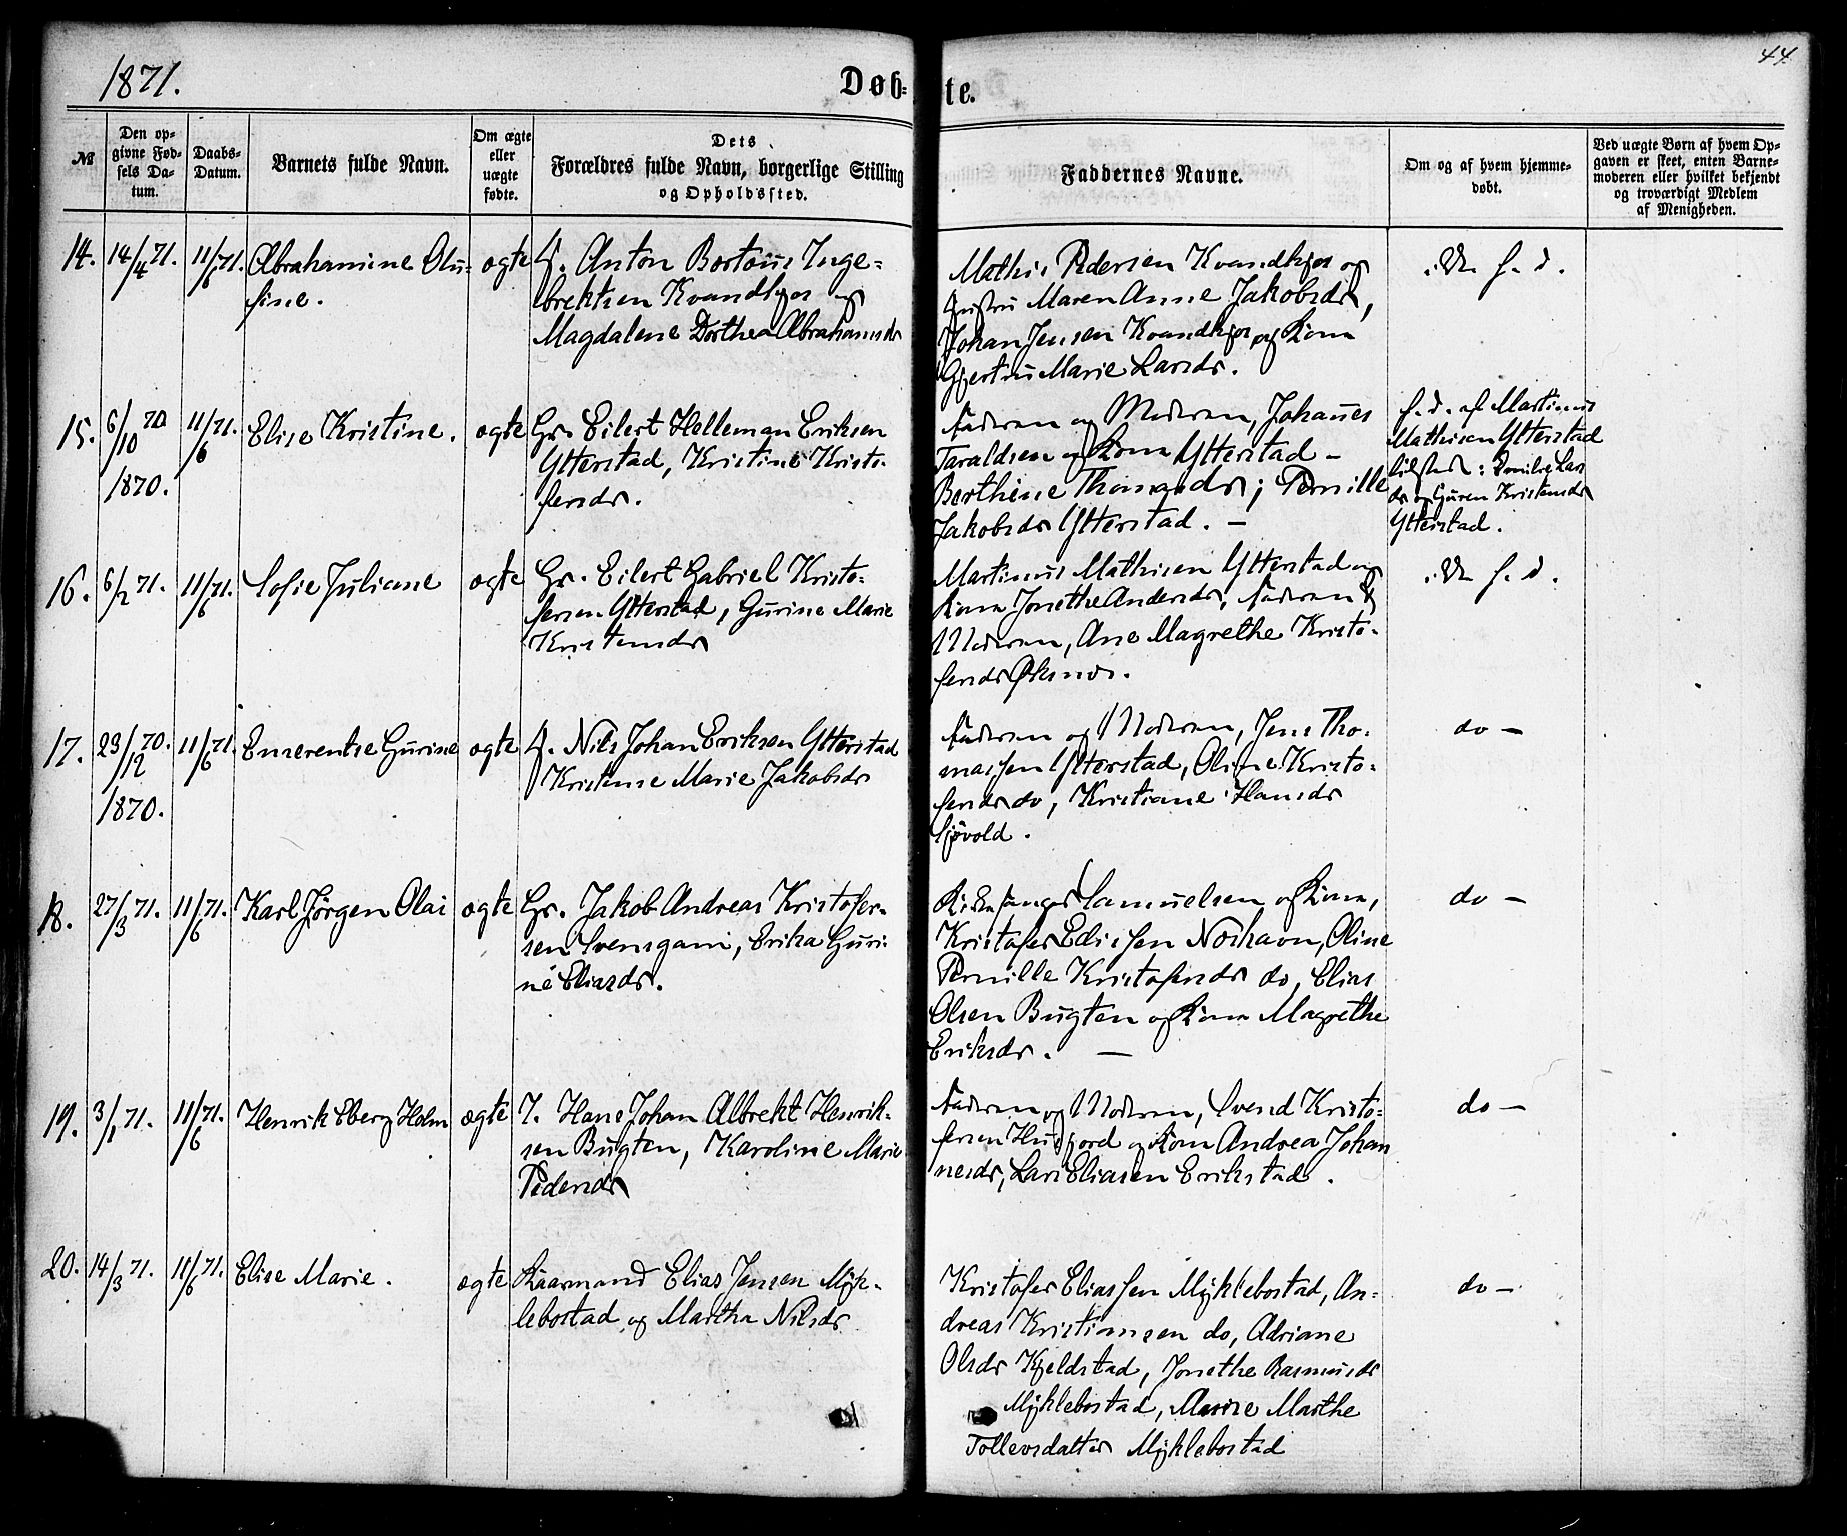 1871.
Døb-
te.
44.
№
Den op-
givne Fød-
sels Da-
tum.
Daabs-
Datum.
Barnets fulde Navn.
Om ægte
eller
uægte
fødte.
Dets
Forældres fulde Navn, borgerlige Stilling
og Opholdssted.
Faddernes Navne.
Om og af hvem hjemme-
døbt.
Ved uægte Børn af hvem Op-
gaven er skeet, enten Barne-
moderen eller hvilket bekjendt
og troværdigt Medlem
af Menigheden.
14.
14/4 71.
11/6 71.
Abrahamine Olu-
fine.
ægte
Anton Berteus Inge-
brektsen Kvandkjos og
Magdalene Dorthea Abrahamsdr
Mathis Pedersen Kvandkjos og
Hustru Maren Anne Jakobsdr,
Johan Jensen Kvandkjos og Kone
Gjertine Marie Larsdr.
h. d.
15.
6/10 70
1870.
11/6 71.
Elise Kristine.
ægte
Gr. Eilert Helleman Eriksen
Ytterstad, Kristine Kristo-
fersdr.
Faderen og Moderen, Johannes
Taraldsen og Kone Ytterstad -
Berthine Thomasdr; Pernille
Jakobsdr Ytterstad. -
h. d. af Martinus
Mathisen Ytterstad
tilstede: Emilie Lars
dr og Guren Kristensdr
Ytterstad.
16.
6/2 71.
11/6 71.
Sofie Juliane
ægte
Gr. Eilert Gabriel Kristo-
fersen Ytterstad, Gurine Marie
Kristensdr
Martinus Mathisen Ytterstad og
Kone Jonethe Andersdr, Faderen &
Moderen, Ane Magrethe Kristo-
fersdr Øksnes.
h. d.
17.
23/12 70.
1870.
11/6 71.
Emerentse Gurine
ægte
Nils Johan Eriksen Ytterstad
Kristense Marie Jakobsdr
Faderen og Moderen, Jens Tho-
massen Ytterstad, Oline Kristo-
fersdr do, Kristiane Hansdr
Sjøvold.
do -
18.
27/3 71.
11/6 71.
Karl Jørgen Olai
ægte
Gr. Jakob Andreas Kristofer-
sen Svensgam, Erika Guri-
ne Eliasdr.
Kirkesanger Samuelsen og Kone,
Kristofer Edissen Noshavn, Oline
Pernille Kristofersdr do, Elias
Olsen Bugten og Kone Magrethe
Eriksdr. -
do -
19.
3/1 71.
11/6 71.
Henrik Eberg Holm
ægte
I. Hans Johan Albrekt Henrik-
sen Bugten, Karoline Marie
Pedersdr
Faderen og Moderen, Svend Kristo-
fersen Husfjord og Kone Andrea Johan
nesdr, Lars Eliasen Erikstad.
do -
20.
14/3 71.
11/6 71.
Elise Marie.
ægte
Kaarmand Elias Jensen Myk-
lebostad og Martha Nilsdr
Kristofer Eliassen Myklebostad, An-
dreas Kristiansen do, Adriane
Olsdr Kjeldstad, Jonethe Rasmusdr
Myklebostad, Marthe
Tollevsdatter Myklebostad
do -